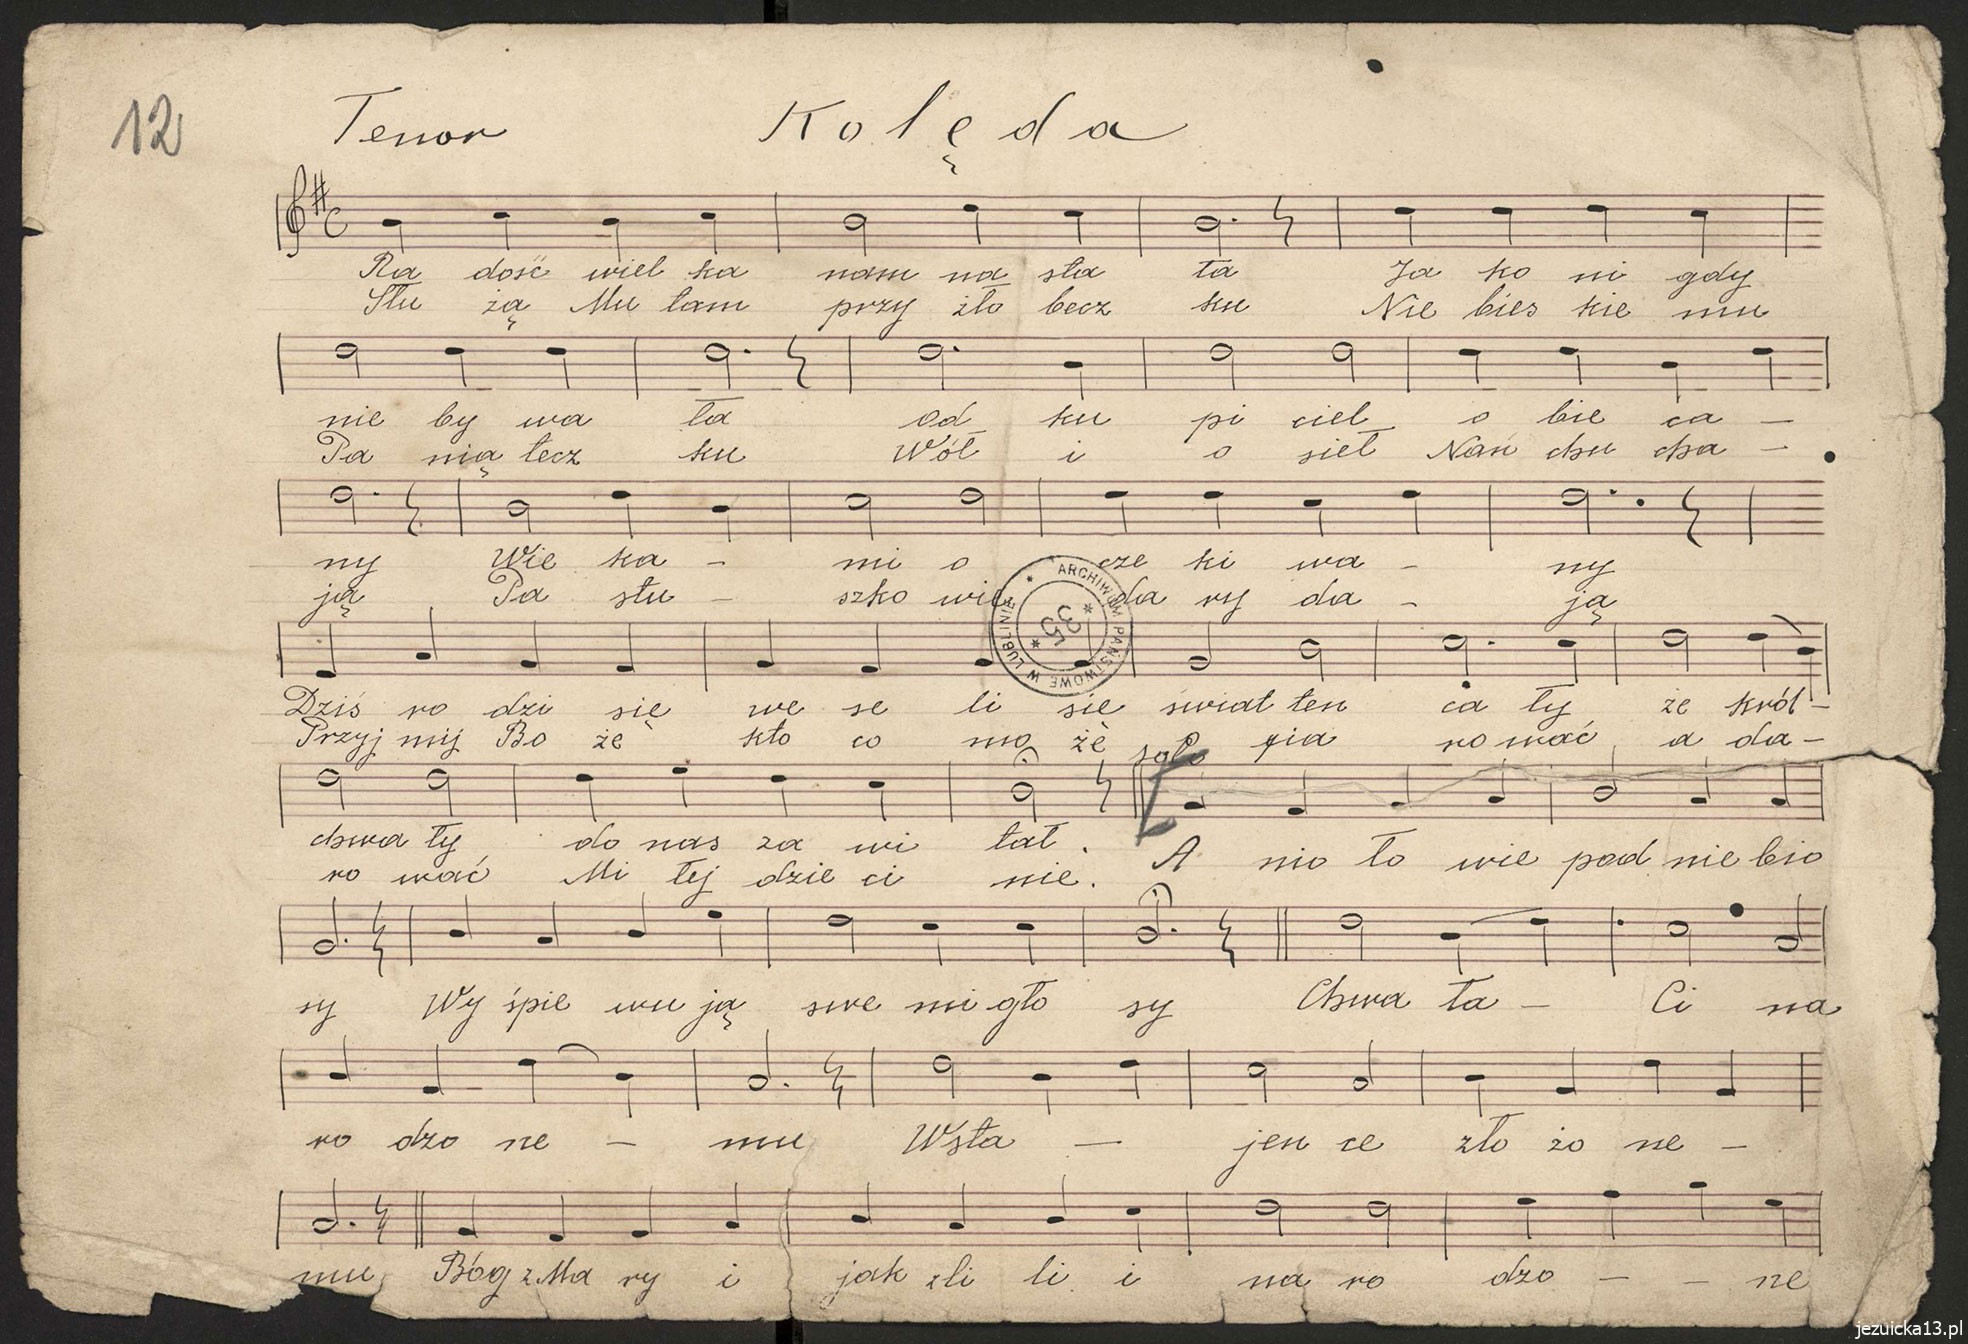 12
Tenor Kolęda
Ra dość wiel ka nam na sta ła Ja ko ni gdy
Słu żą Mu tam przy żło becz ku Nie bies kie mu
nie by wa ła Od ku pi ciel o bie ca –
Pa nią tecz ku Wół i o sieł Nań chu cha –
ny Wie ka – mi o cze ki wa – ny
ją Pa stu – szko wie da ry da – ją
ARCHIWUM PAŃSTWOWE W LUBLINIE
35
Dziś ro dzi się we se li się świat ten ca ły że król –
Przyj mij Bo że kto co mo że o fia ro wać a da –
solo
chwa ły do nas za wi tał. A nio ło wie pod nie bio
ro wać Mi łej dzie ci nie.
sy Wy śpie wu ją swe mi gło sy Chwa ła – Ci na
ro dzo ne – mu W sta – jen ce zło żo ne –
mu Bóg z Ma ry i jak zli li i na ro dzo – – ne
jezuicka13.pl